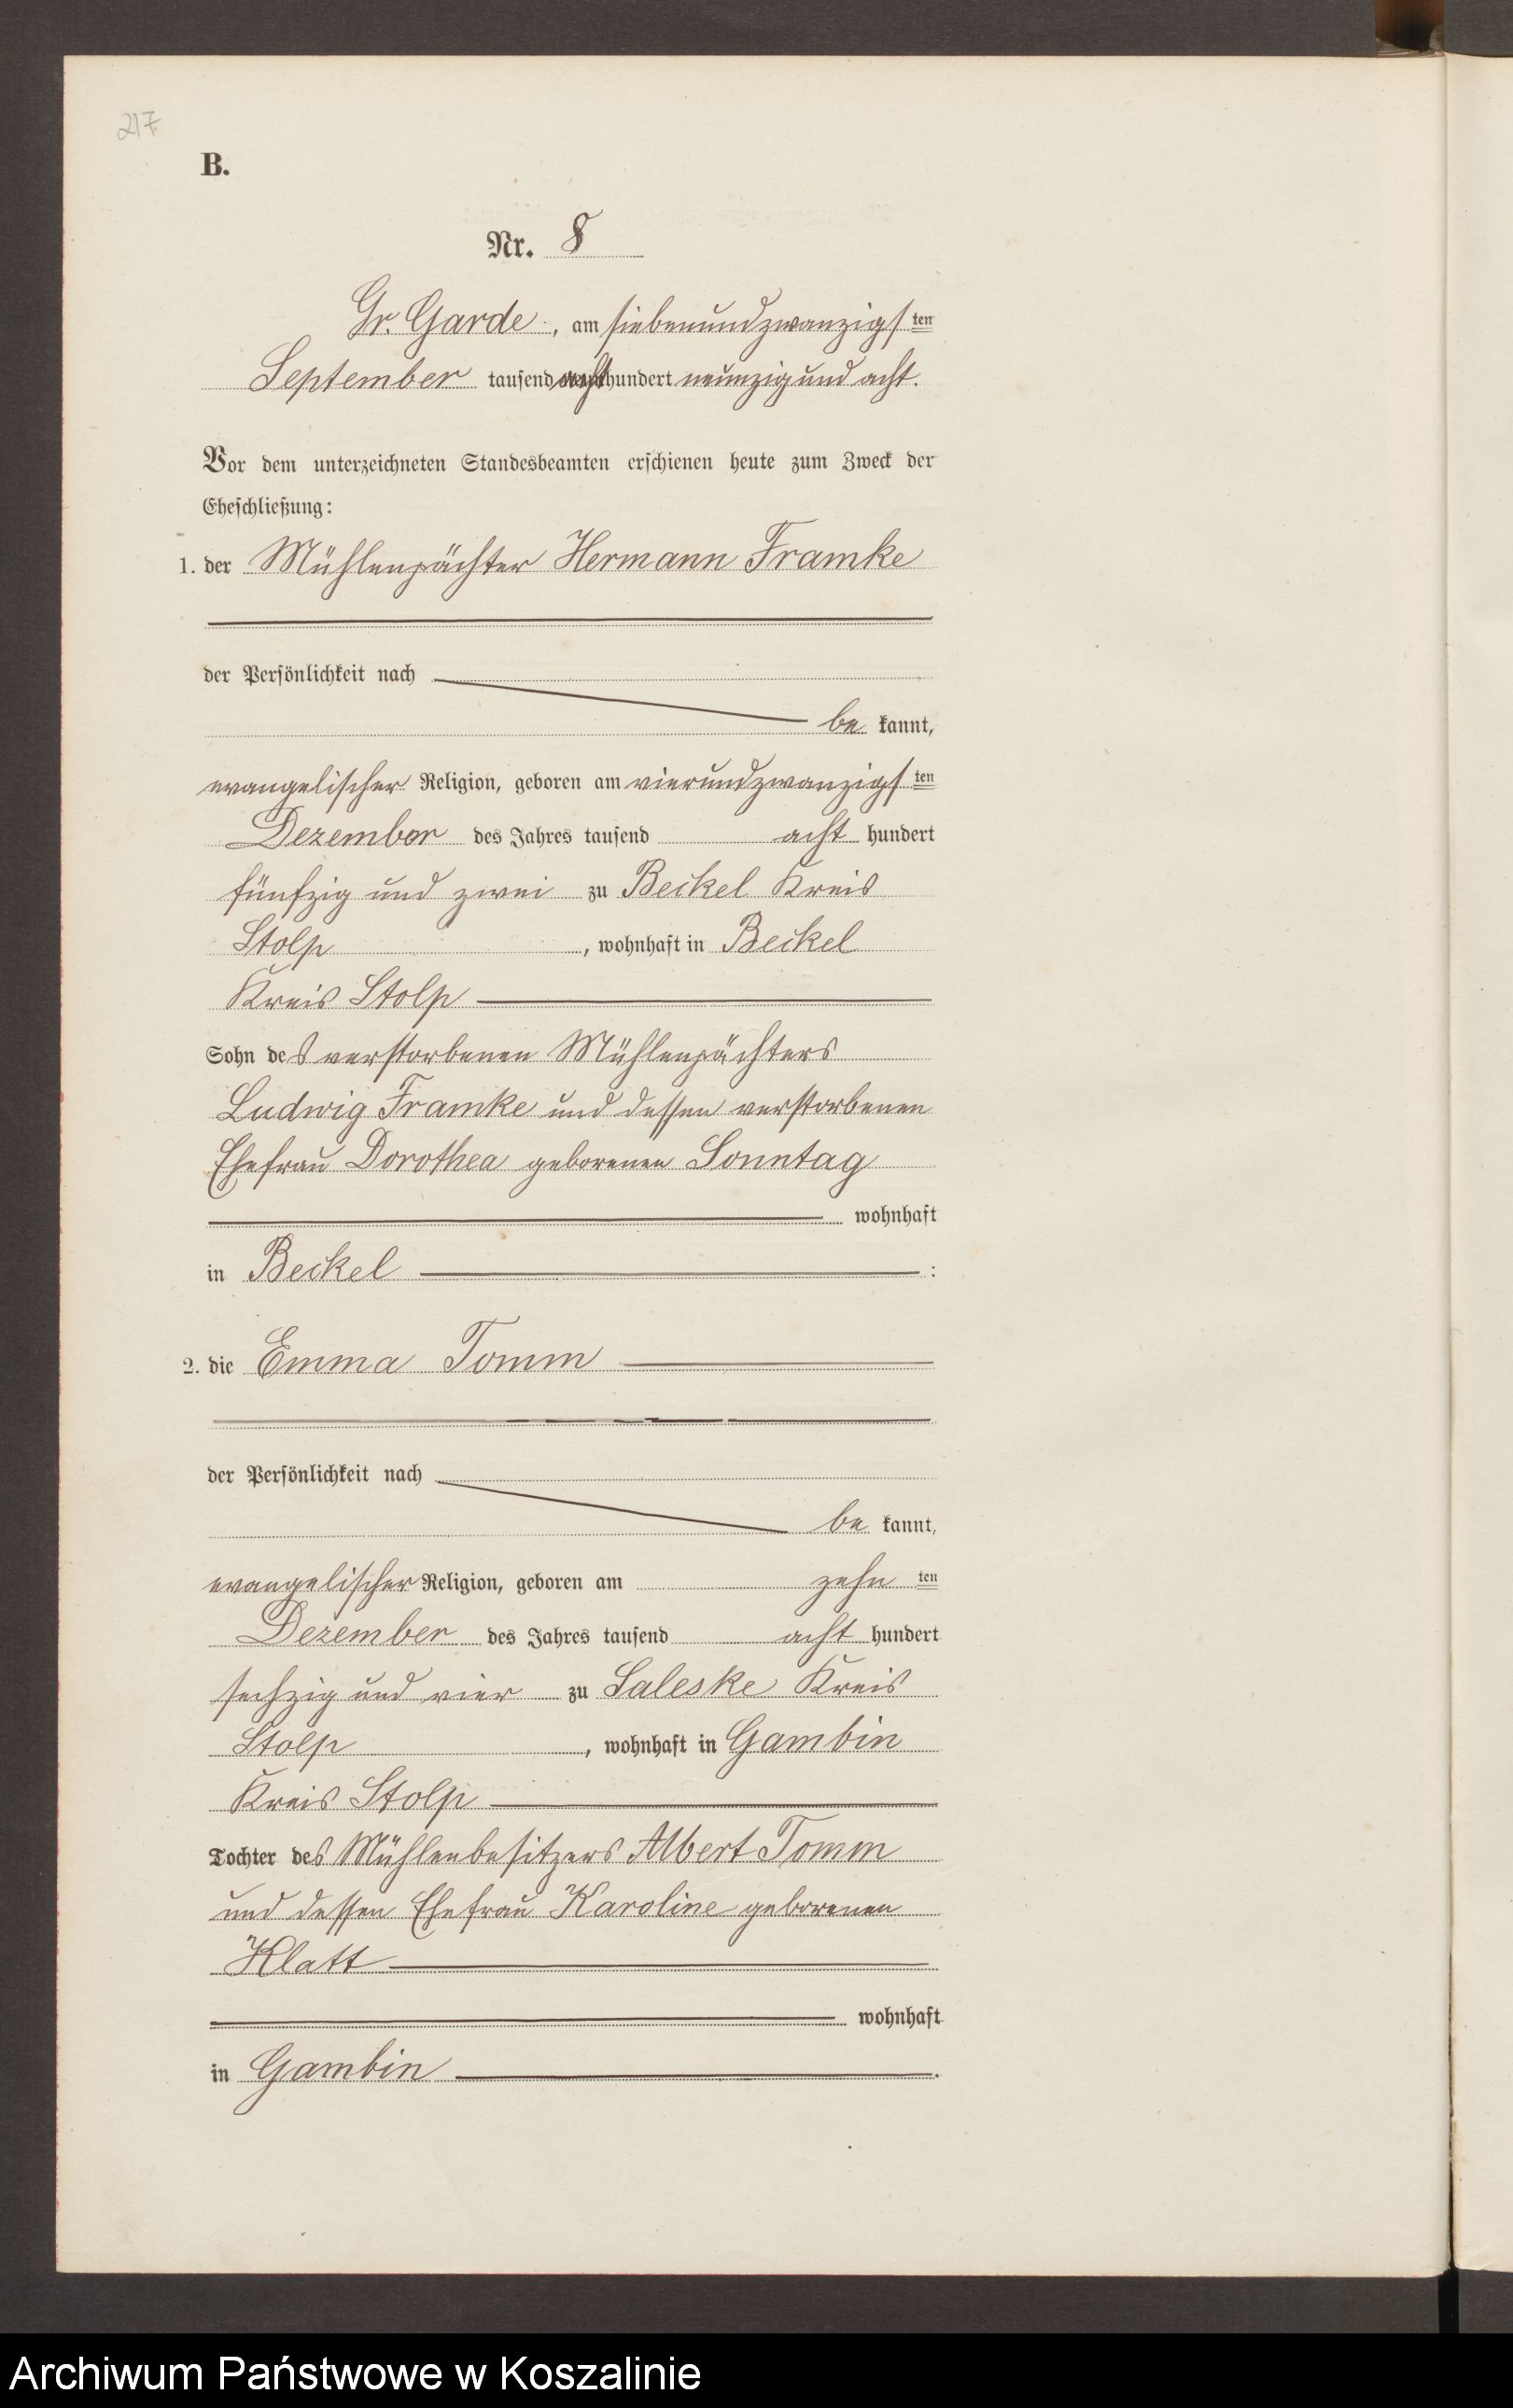 217
B.
Nr. 8
Gr. Garde, am siebenundzwanzigsten
September tausend achthundert neunzig und acht.
Vor dem unterzeichneten Standesbeamten erschienen heute zum Zweck der
Eheschließung:
1. der Mühlenpächter Hermann Framke
der Persönlichkeit nach
be kannt,
evangelischer Religion, geboren am vierundzwanzigsten
Dezember des Jahres tausend acht hundert
fünfzig und zwei zu Beckel Kreis
Stolp, wohnhaft in Beckel
Kreis Stolp
Sohn des verstorbenen Mühlenpächters
Ludwig Framke und dessen verstorbenen
Ehefrau Dorothea geborenen Sonntag
wohnhaft
in Beckel :
2. die Emma Tomm
der Persönlichkeit nach
be kannt,
evangelischer Religion, geboren am zehn ten
Dezember des Jahres tausend acht hundert
sechzig und vier zu Saleske Kreis
Stolp, wohnhaft in Gambin
Kreis Stolp
Tochter des Mühlenbesitzers Albert Tomm
und dessen Ehefrau Karoline geborenen
Klatt
wohnhaft
in Gambin.
Archiwum Państwowe w Koszalinie